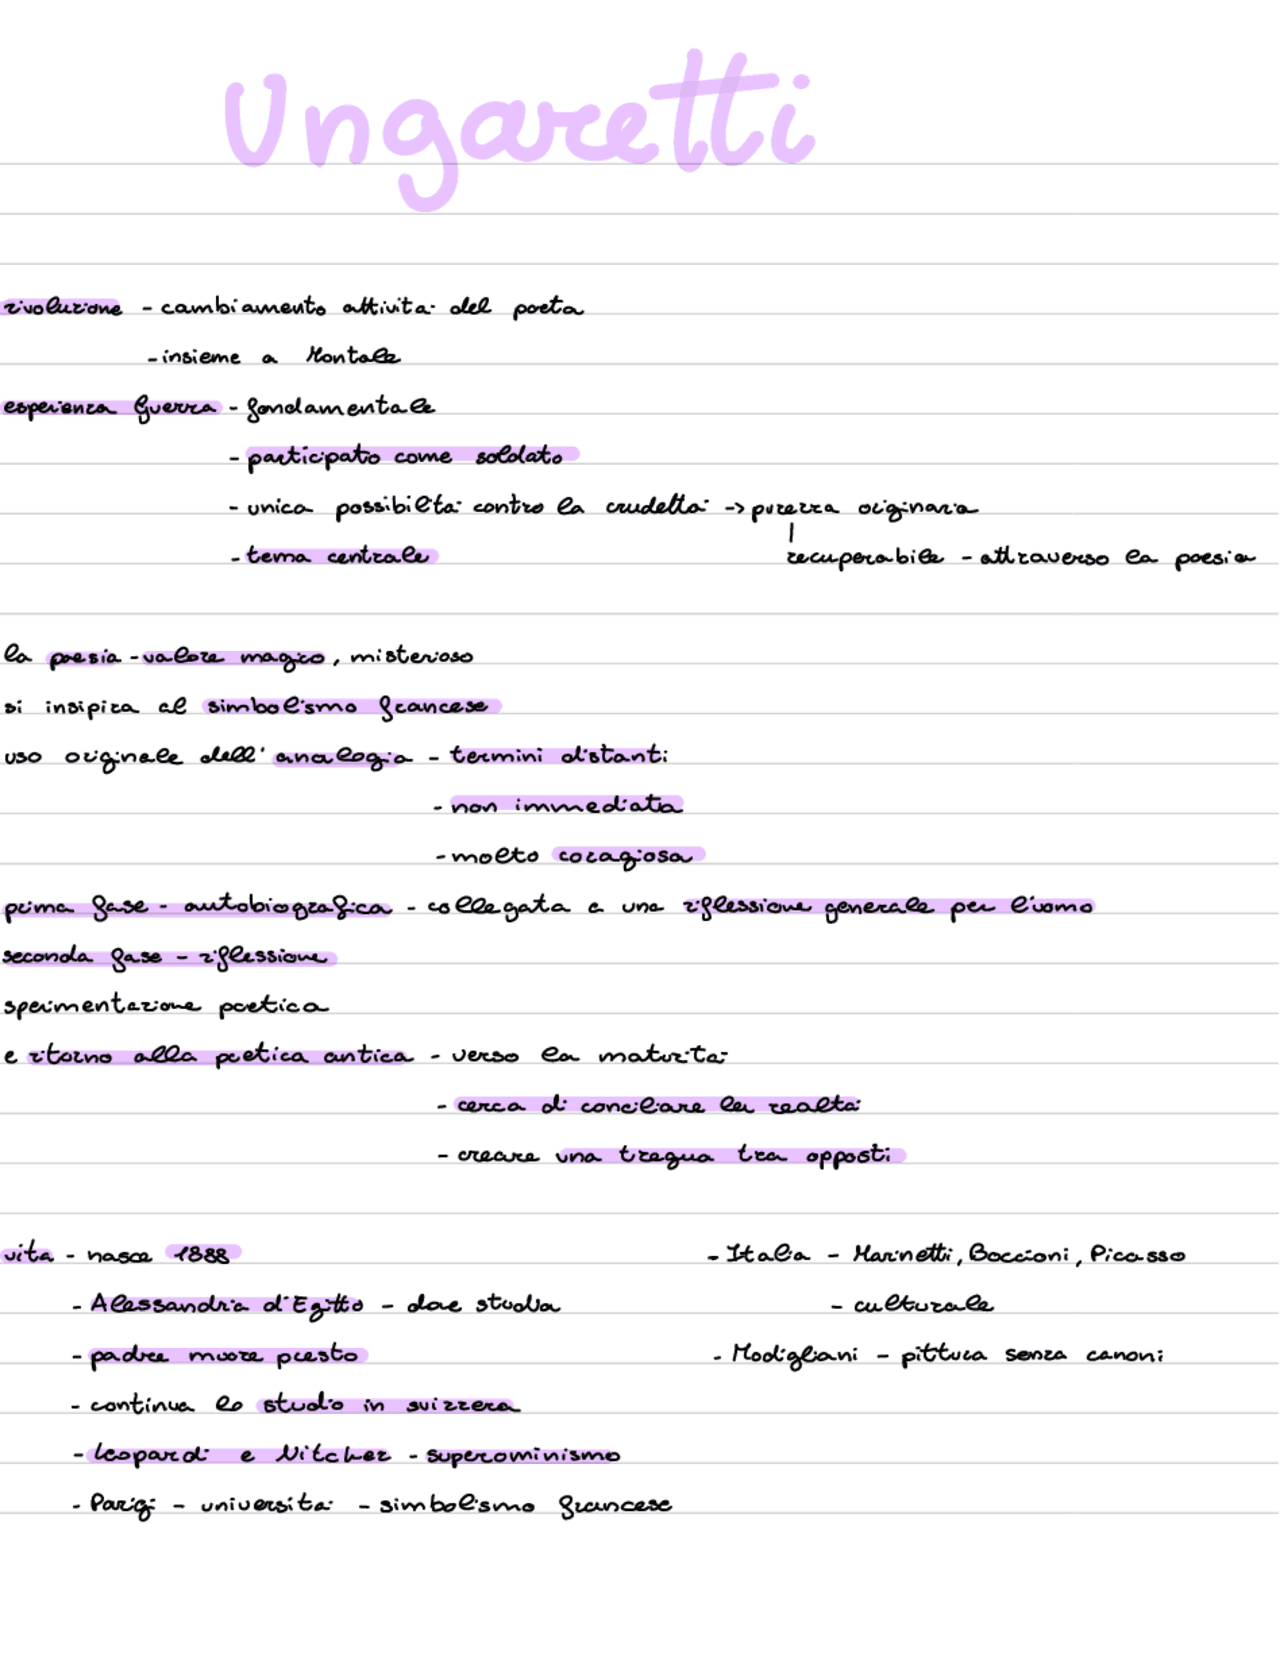 Ungaretti
rivoluzione - cambiamento attività del poeta
- insieme a Montale
esperienza guerra - fondamentale
- participato come soldato
- unica possibilità contro la crudeltà -> purezza originaria
- tema centrale
recuperabile - attraverso la poesia
la poesia - valore magico, misterioso
si insipira al simbolismo francese
uso originale dell'analogia - termini distanti
- non immediata
- molto coragiosa
prima fase - autobiografica - collegata a una riflessione generale per l'uomo
seconda fase - riflessione
sperimentazione poetica
e ritorno alla poetica antica - verso la maturità
- cerca di conciliare la realtà
- creare una tregua tra opposti
vita - nasce 1888
- Alessandria d'Egitto - dove studia
- padre muore presto
- continua lo studio in svizzera
- Leopardi e Nitcher - superominismo
- Parigi - università - simbolismo francese
- Italia - Marinetti, Boccioni, Picasso
- culturale
- Modigliani - pittura senza canoni